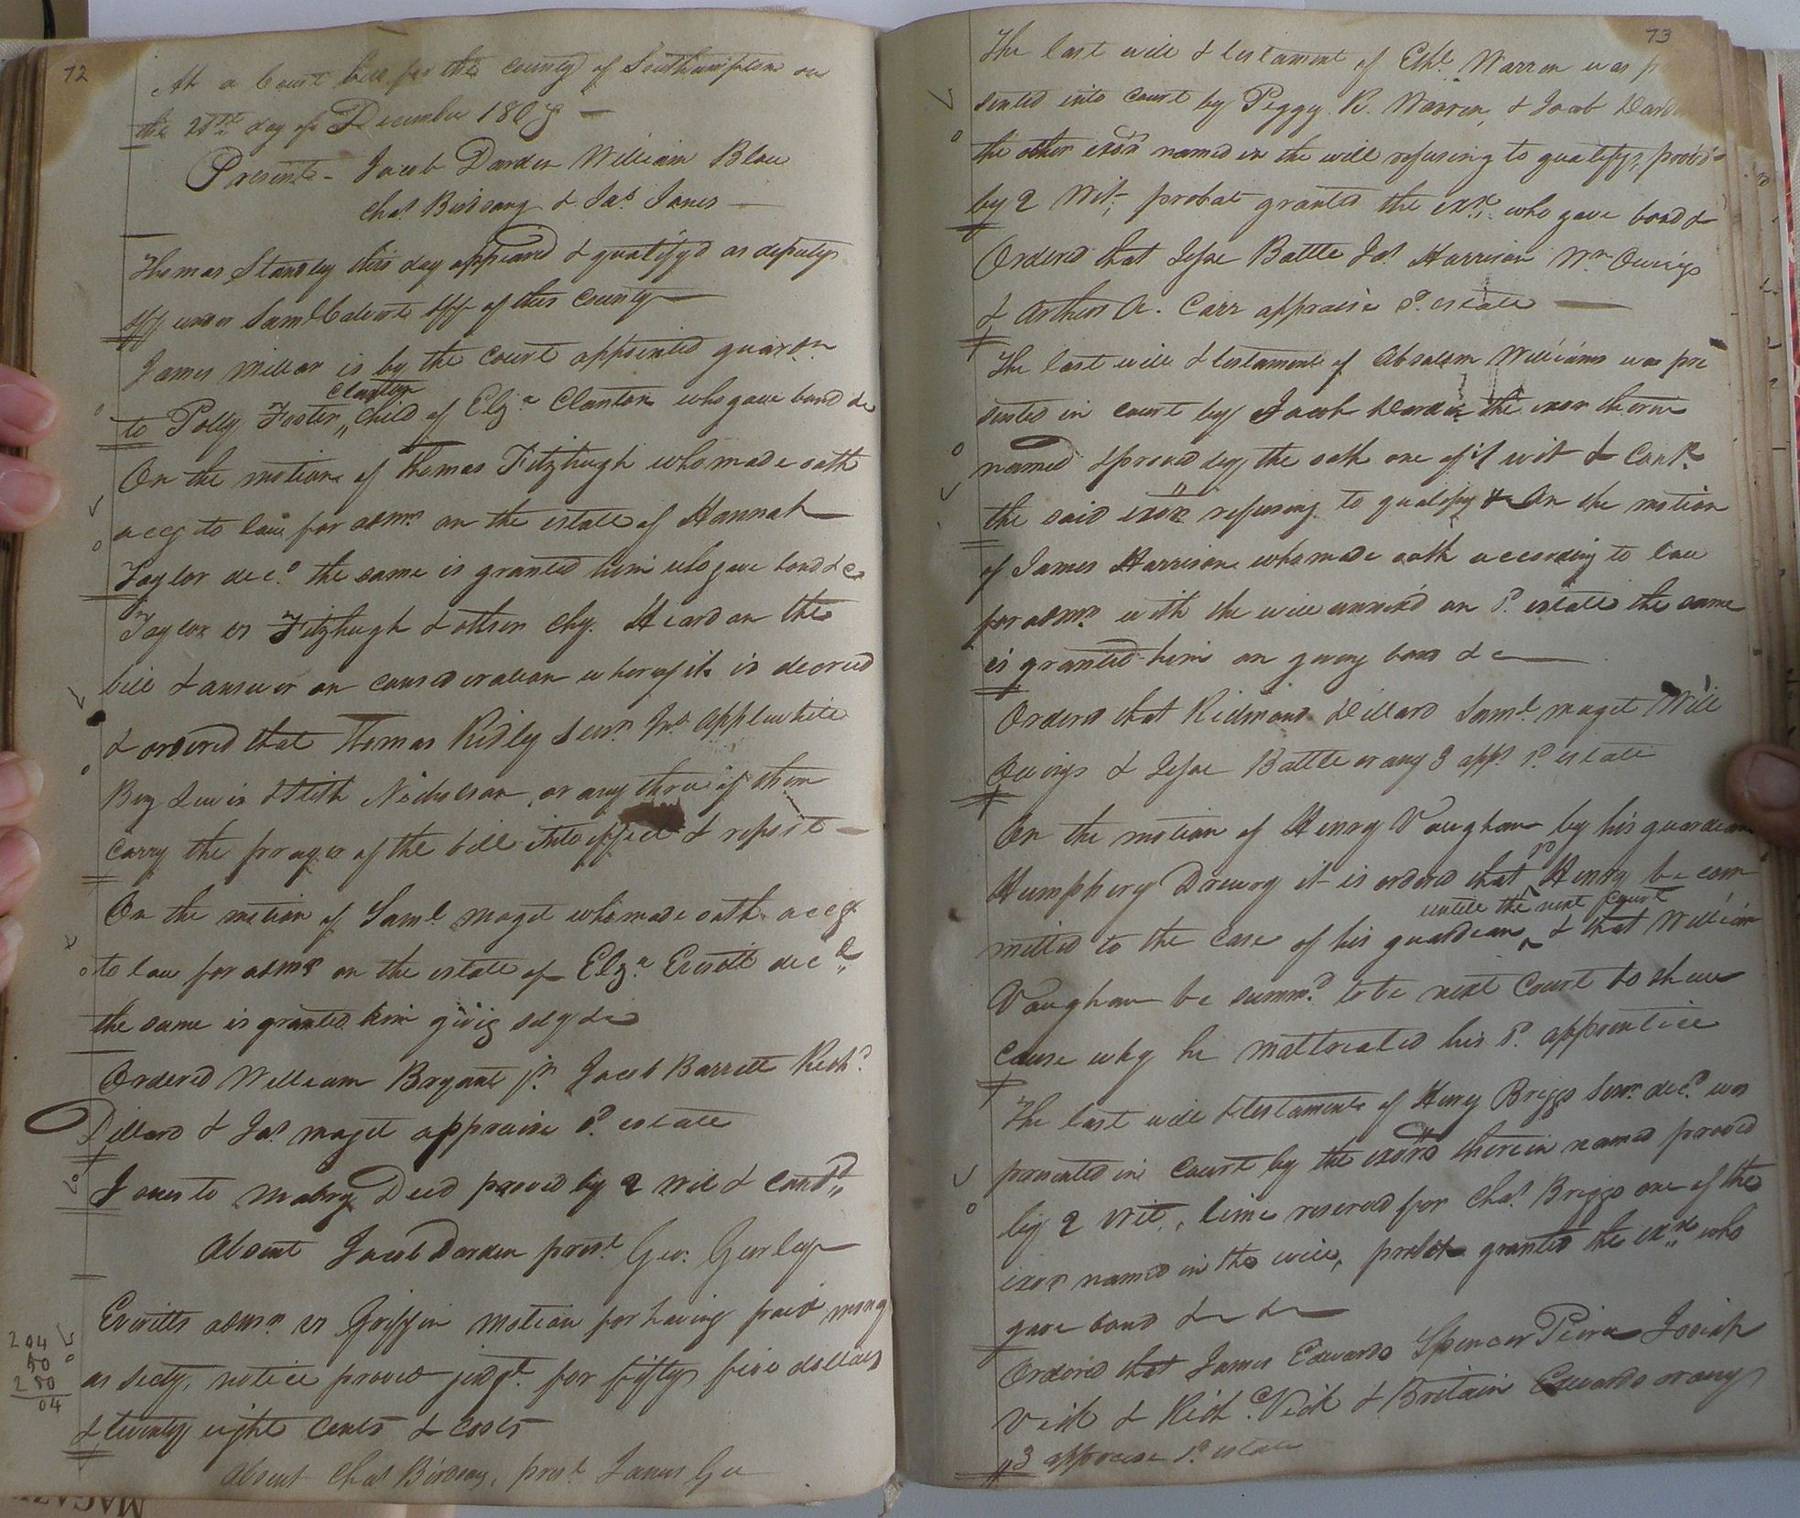 72
At a Court held for the county of Southampton on
the 21st day of December 180
Present - Jacob Darden William Blow
Chas Birdsong & Jas. Jones
Thomas Standly this day appeard & qualifyd as deputy
Sff under Saml Calvert Sff of this County
James Millar is by the court appointed guardn
Clanton
to Polly Foster, child of Elza Clanton who gave bond &c
On the motion of Thomas Fitzhugh who made oath
accg to law for admn on the estate of Hannah
Taylor decd the same is granted him who gave bond &c
Taylor vs Fitzhugh & others Chy. Heard on the
bill & answer on consideration whereof it is decreed
& ordered that Thomas Ridley Senr. Jno Applewhite
Benj Lewis & Nicholson, or any three of them
carry the prayer of the bill into effect & report
On the motion of Saml. Maget who made oath accg
to law for admn on the estate of Elza Everitt decd
the same is granted him givig scty &c
Ordered William Bryant jr. Jacob Barrett Richd
Dillard & Jas Maget appraise sd. estate
Jones to Mabry Deed proved by 2 wit & contd
Absent Jacob Darden prest Geo. Gurley
Everitts admn vs Griffin motion for having paid mony
204
50
250
04
as scty, notice proved judgt. for fifty five dollars
& twenty eight cents & costs
Absent Chas Birdsong, prest James Gee
73
The last will & testament of Ethd. Warren was p
sented into court by Peggy R. Warren, & Jacob Dard
the other exor named in the will refusing to qualify, provd
by 2 Wit, probat granted the exx. who gave bond &
Ordered that Jesse Battle Jas Harrison Wm Owings
& Arthur A. Carr appraise sd. estate
The last will & testament of Absalom Williams was pre
sented in court by Jacob Darden the exor therein
named & proved by the oath one of wit & Contd.
the said exor refusing to qualify & On the motion
of James Harrison who made oath according to law
for admn with the will annexd on sd. estate the same
is granted him on giving bond &c
Orderd that Ridmond Dillard Saml. Maget Will
Owings & Jesse Battle or any 3 appr sd. estate
On the motion of Henry Vaughan by his guardian
sd
Humphery Drewry it is orderd that Henry be com
untill the next Court
mitted to the care of his guardian & that William
Vaughan be summd. to be next Court to shew
cause why he maltreated his sd. apprentice
The last will & testament of Henry Briggs Senr. decd. was
presented in Court by the exors therein named proved
by 2 Wit, time reserved for Chas Briggs one of the
exors named in the will, probt granted the exx who
gave bond &c &c
Ordered that James Edwards Spencer Peirce Josiah
Vick & Richd. Vick & Britain Edwards or any
3 appraise sd. estate